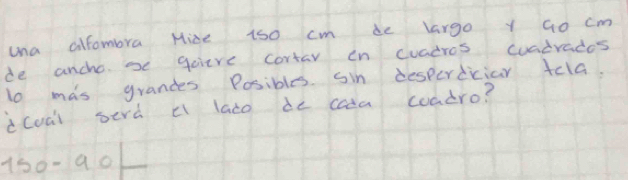 una alfombra Mide 150 cm de largo y 90 cm
de ancho. se quiere cortar en cuadros cuadrados
lo más grandes Posibles. sin desperdiciar tela.
¿Cuál será el lado de cada cuadro?
150-90